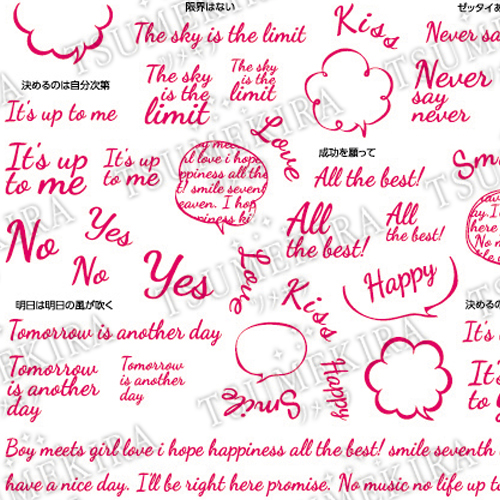 限界はない
The sky is the limit
Kiss
ゼッタイあ
Never sa
The sky
is the
limit
The sky
is the
limit
Never
say
never
決めるのは自分次第
It's up to me
It's up
to me
It's up
to me
boy mee
girl love i hope
happiness all the
t! smile sevent
eaven. I hop
piness ki
Love
成功を願って
All the best!
All
the best!
All
the best!
Smi
day.I
here
No m
No
Yes
No
Yes
Love
Kiss
Happy
明日は明日の風が吹く
Tomorrow is another day
Tomorrow
is another
day
Tomorrow
is another
day
Smile
Happy
決めるの
It's
It's
to
Boy meets girl love i hope happiness all the best! smile seventh
have a nice day. I'll be right here promise. No music no life up t
TSUMEKIRA
ツメキラ